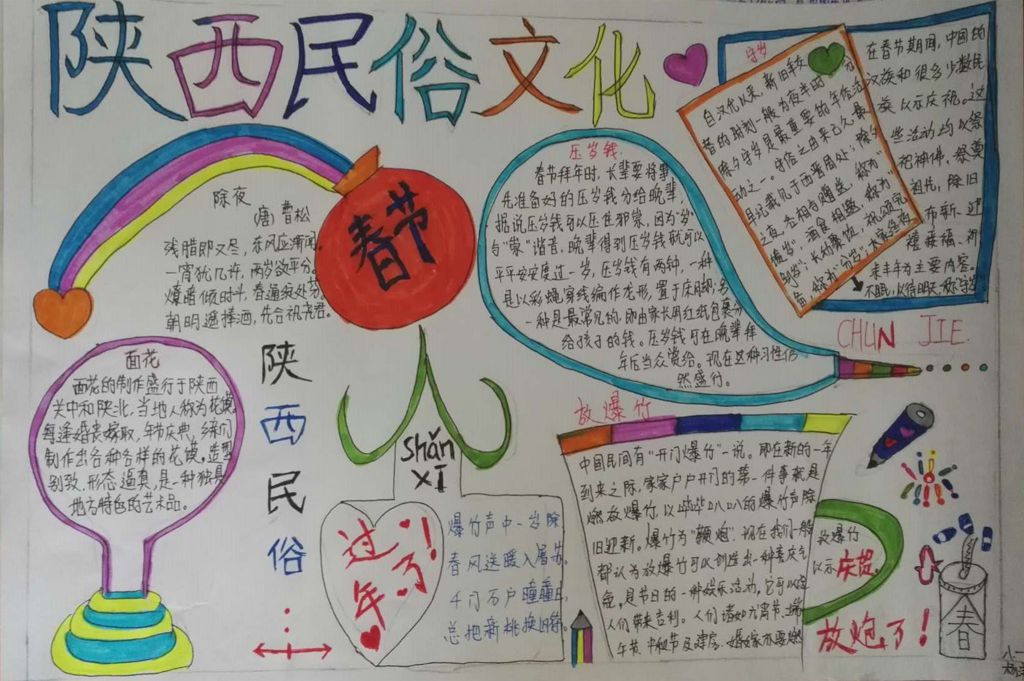 陕西民俗文化
除夜
(唐)曹松
残腊即又尽,东风应渐闻。
一宵犹几许,两岁欲平分。
燎暗倾时斗,春通绽处芬。
朝明遥捧酒,先合祝尧君。
春节
压岁钱
春节拜年时,长辈要将事
先准备好的压岁钱分给晚辈,
据说压岁钱可以压住邪祟,因为"岁"
与"祟"谐音,晚辈得到压岁钱就可以
平平安安度过一岁,压岁钱有两种,一种
是以彩绳穿线编作龙形,置于床脚,另
一种是最常见的,即由家长用红纸包裹分
给孩子的钱。压岁钱可在晚辈拜
年后当众赏给。现在这种习惯仍
然盛行。
守岁
自汉代以来,新旧年交
替的时刻一般为夜半时分
除夕守岁是最重要的年俗活
动之一。守俗之由来已久,最
早记载见于西晋周处:除夕
之夜,各相与赠送,称为
酒食相邀,称为
长幼聚饮,祝颂完
备,称为"分岁"
大家终夜
不眠,以待天明,称守岁
在春节期间,中国的
汉族和很多少数民
族 以示庆祝。这
些活动均以祭
祀神佛、祭奠
祖先、除旧
布新、迎
禧接福、祈
求丰年为主要内容。
CHUN JIE.
面花
面花的制作盛行于陕西
关中和陕北,当地人称为花馍
每逢婚丧嫁娶,年节庆典,乡亲们
制作出各种各样的花馍。造型
别致、形态逼真,是一种独具
地方特色的艺术品。
陕西民俗
shǎn
xī
过年了!
爆竹声中一岁除,
春风送暖入屠苏。
千门万户曈曈日,
总把新桃换旧符。
放爆竹
中国民间有"开门爆竹"一说。即在新的一年
到来之际,家家户户开门的第一件事就是
燃放爆竹,以哔哔叭叭的爆竹声除
旧迎新。爆竹为"鞭炮",现在我们一般
都认为放爆竹可以创造出一种喜庆气
氛,是节日的一种娱乐活动,它可以给
人们带来吉利。人们诸如元宵节、端
午节、中秋节及建房、婚嫁家亦要燃
放爆竹
以示庆贺。
放炮了!
春